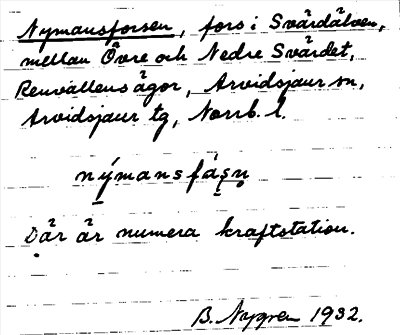 Nymansforsen, fors i Svärdälven,
mellan Övre och Nedre Svärdet,
Renvallens ägor, Arvidsjaur sn,
Arvidsjaur tg, Norrb. l.
nýmansfáșn̥
Där är numera kraftstation.
B. Nygren 1932.